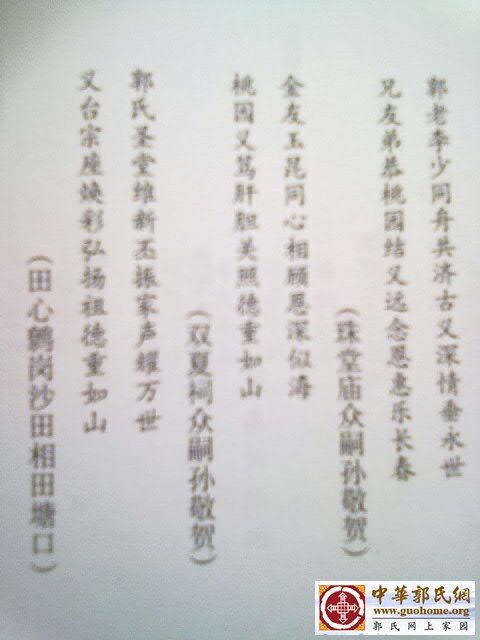 郭老李少同舟共济古义深情垂永世
兄友弟恭桃园结义远念恩惠乐长春
（珠堂庙众嗣孙敬贺）
金友玉昆同心相顾恩深似海
桃园义笃肝胆美照德重如山
（双夏祠众嗣孙敬贺）
郭氏圣堂维新丕振家声耀万世
义台宗座焕彩弘扬祖德重如山
（田心鹤岗沙田相田塘口）
中華郭氏網
www.guohome.org
郭氏网上家园